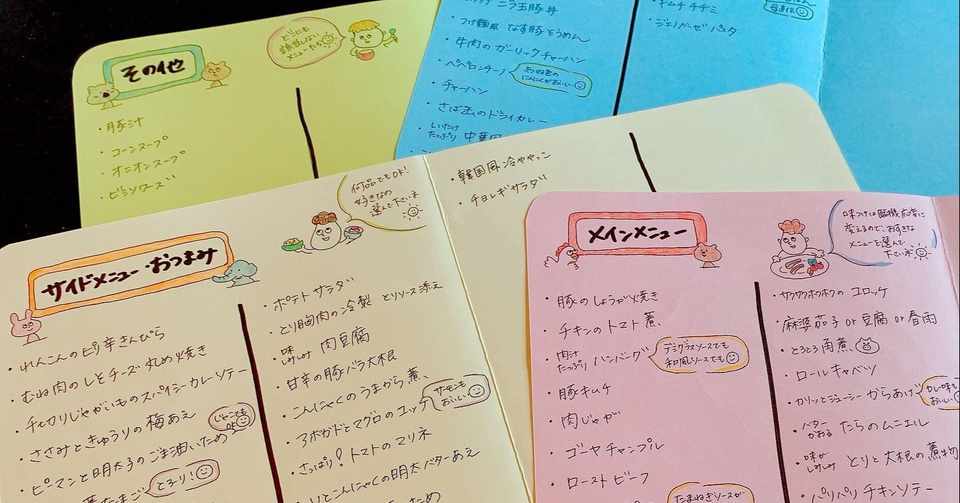 その他
どれにも
メニューたち
・豚汁
・コーンスープ
・オニオンスープ
・ピザソース
ニラ玉豚丼
つけ麺風 なす豚そうめん
・牛肉のガーリックチャーハン
・ペペロンチーノ
・チャーハン
・さば缶のドライカレー
しいたけ
たっぷり 中華
・キムチチヂミ
・ジェノベーゼパスタ
サイドメニュー・おつまみ
何品でもOK!
好きなの
選んで下さいネ
・れんこんのピリ辛きんぴら
・むね肉のしそチーズ丸め焼き
・チョカリじゃがいものスパイシーカレーソテー
・ささみときゅうりの梅あえ
・ピーマンと明太子のごま油いため
たまご
とろり!
・ポテトサラダ
・とり胸肉の冷製 とりソース添え
・味しみ 肉豆腐
・甘辛の豚バラ大根
・こんにゃくのうまから煮
・アボガドとマグロのユッケ
サーモンも
おいしい
・さっぱり!トマトのマリネ
こんにゃくの明太バターあえ
・韓国風冷ややっこ
・チョレギサラダ
メインメニュー
味つけは臨機応変に
変えるので、お好きな
メニューを選んで
下さいネ
・豚のしょうが焼き
・チキンのトマト煮
・肉汁たっぷり ハンバーグ
デミグラスソースでも
和風ソースでも
・豚キムチ
・肉じゃが
・ゴーヤチャンプル
・ローストビーフ
たまねぎソースが
・サクサクホクホクのコロッケ
・麻婆茄子or豆腐or春雨
・とろとろ角煮
・ロールキャベツ
・カリッとジューシーからあげ
カレー味も
おいしい
・バターかおる たらのムニエル
・味がしみしみ とりと大根の煮物
・パリパリチキンソテー